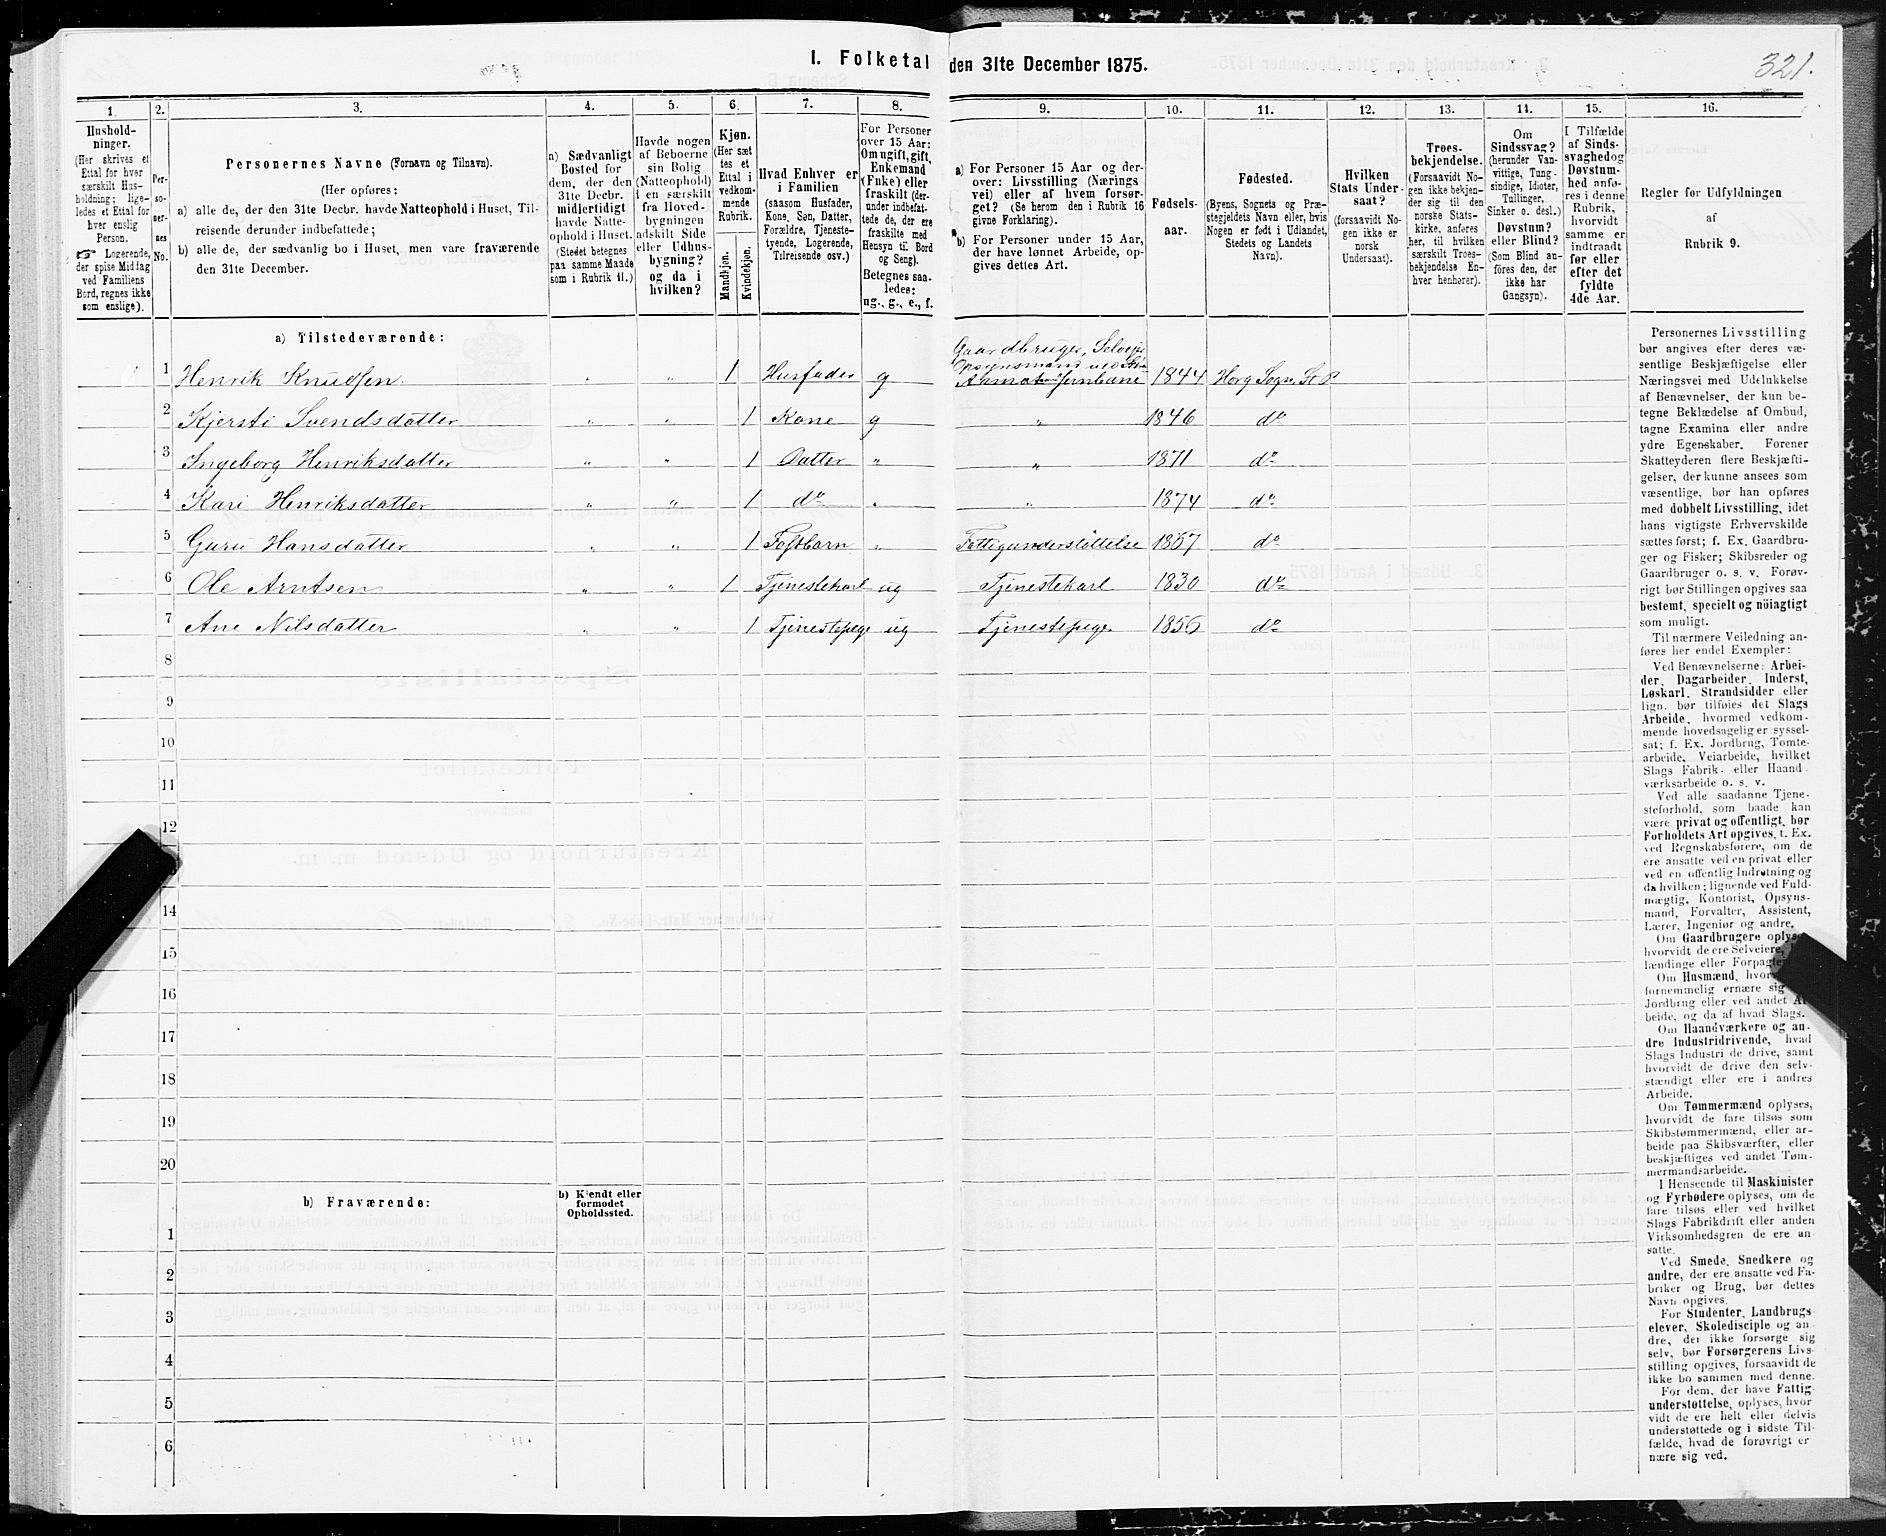 1. Folketal den 31te December 1875.
321.
1. 2. 3. 4. 5. 6. 7. 8. 9. 10. 11. 12. 13. 14. 15. 16.
Hushold-
ninger.
(Her skrives et
Ettal for hver
særskilt Hus-
holdning; lige-
ledes et Ettal for
hver enslig
Person.
☞ Logerende,
der spise Middag
ved Familiens
Bord, regnes ikke
som enslige).
Per-
so-
ner-
nes
No.
Personernes Navne (Fornavn og Tilnavn).
(Her opføres:
a) alle de, der den 31te Decbr. havde Natteophold i Huset, Til-
reisende derunder indbefattede;
b) alle de, der sædvanlig bo i Huset, men vare fraværende
den 31te December.
a) Sædvanligt
Bosted for
dem, der den
31te Decbr.
midlertidigt
havde Natte-
ophold i Huset.
(Stedet betegnes
paa samme Maade
som i Rubrik 11.)
Havde nogen
af Beboerne
sin Bolig
(Natteophold)
i en særskilt
fra Hoved-
bygningen
adskilt Side
eller Udhus-
bygning?
og da i
hvilken?
Kjøn.
(Her sæt
tes et
Ettal i
vedkom-
mende
Rubrik.
Mandkjøn.
Kvindekjøn.
Hvad Enhver er
i Familien
(saasom Husfader,
Kone, Søn, Datter,
Forældre, Tjeneste-
tyende, Logerende,
Tilreisende osv.)
For Personer
over 15 Aar:
Om ugift, gift,
Enkemand
(Enke) eller
fraskilt (der-
under indbefat-
tede de, der ere
fraskilte med
Hensyn til Bord
og Seng).
Betegnes saa-
ledes:
ug., g., e., f.
a) For Personer 15 Aar og der-
over: Livsstilling (Nærings
vei) eller af hvem forsør-
get? (Se herom den i Rubrik 16
givne Forklaring).
b) For Personer under 15 Aar,
der have lønnet Arbeide, op-
gives dettes Art.
Fødsels-
aar.
Fødested.
(Byens, Sognets og Præ-
stegjeldets Navn eller, hvis
Nogen er født i Udlandet,
Stedets og Landets
Navn).
Hvilken
Stats Under-
saat?
(forsaavidt No-
gen ikke er
norsk
Undersaat).
Troes-
bekjendelse.
(Forsaavidt No-
gen ikke bekjen-
der sig til den
norske Stats-
kirke, anføres
her, til hvilken
særskilt Troes-
bekjendelse En-
hver henhører).
Om
Sindssvag?
(herunder Van-
vittige, Tung-
sindige, Idioter,
Tullinger,
Sinker o. desl.)
Døvstum?
eller Blind?
(Som Blind an-
føres den, der
ikke har
Gangsyn).
I Tilfælde
af Sinds-
svaghed og
Døvstum-
hed anfø-
res i denne
Rubrik,
hvorvidt
samme er
indtraadt
før eller
efter det
fyldte
4de Aar.
Regler for Udfyldningen
af
Rubrik 9.
a) Tilstedeværende:
1 Henrik Knudsen " " 1 Husfader g Gaardbruger, Selveier 1844 Horg Sogn
2 Kjersti Svendsdatter " " 1 Kone g " 1846 do
3 Ingeborg Henriksdatter " " 1 Datter " " 1871 do
4 Kari Henriksdatter " " 1 do " " 1874 do
5 Guru Hansdatter " " 1 Fostbarn " Fattigunderstøttelse 1867 do
6 Ole Arntsen " " 1 Tjenestekarl ug Tjenestekarl 1830 do
7 Ane Nilsdatter " " 1 Tjenestepige ug Tjenestepige 1856 do
8
9
10
11
12
14
15
16
17
18
19
20
b) Fraværende:
b) Kjendt eller
formodet
Opholdssted.
1
2
3
4
5
6
Personernes Livsstilling
bør angives efter deres væ-
sentlige Beskjæftigelse eller
Næringsvei med Udelukkelse
af Benævnelser, der kun be-
tegne Beklædelse af Ombud,
tagne Examina eller andre
ydre Egenskaber. Forener
Skatteyderen flere Beskjæfti-
gelser, der kunne ansees som
væsentlige, bør han opføres
med dobbelt Livsstilling, idet
hans vigtigste Erhvervskilde
sættes først; f. Ex. Gaardbru-
ger og Fisker; Skibsreder og
Gaardbruger o. s. v. Forøv-
rigt bør Stillingen opgives saa
bestemt, specielt og nöiagtigt
som muligt.
Til nærmere Veiledning an-
føres her endel Exempler:
Ved Benævnelserne: Arbei-
der, Dagarbeider, Inderst,
Løskarl, Strandsidder eller
lign. bør tilføies det Slags
Arbeide, hvormed vedkom-
mende hovedsagelig er syssel-
sat; f. Ex. Jordbrug, Tomte-
arbeide, Veiarbeide, hvilket
Slags Fabrik- eller Haand-
værksarbeide o. s. v.
Ved alle saadanne Tjene-
steforhold, som baade kan
være privat og offentligt, bør
Forholdets Art opgives, t. Ex.
ved Regnskabsførere, om de
ere ansatte ved en privat eller
ved en offentlig Indretning og
da hvilken; lignende ved Fuld-
mægtig, Kontorist, Opsyns-
mand, Forvalter, Assistent,
Lærer, Ingeniør og andre.
Om Gaardbrugere oplyses,
hvorvidt de ere Selveiere,
lændinge eller Forpagtere
Om Husmænd,
fornemmelig ernære sig
Jordbrug eller ved andet Ar-
beide, og da af hvad Slags.
Om Haandværkere og an-
dre Industridrivende, hvad
Slags Industri de drive, samt
hvorvidt de drive den selv-
stændigt eller ere i andres
Arbeide.
Om Tømmermænd oplyses,
hvorvidt de fare tilsøs som
Skibstømmermænd, eller ar-
beide paa Skibsværfter, eller
beskjæftiges ved andet Tøm-
mermandsarbeide.
I Henseende til Maskinister
og Fyrbødere oplyses, om de
fare tilsøs eller ved hvilket
Slags Fabrikdrift eller anden
Virksomhedsgren de ere an-
satte.
Ved Smede, Snedkere og
andre, der ere ansatte ved Fa-
briker og Brug, bør dettes
Navn opgives.
For Studenter, Landbrugs-
elever, Skoledisciple og an-
dre, der ikke forsørge sig
selv, bør Forsørgerens Livs-
stilling opgives, forsaavidt de
ikke bo sammen med denne.
For dem, der have Fattig-
understøttelse, oplyses, hvor
vidt de ere helt eller delvis
understøttede og i sidste Til-
fælde, hvad de forøvrigt er
nære sig ved.